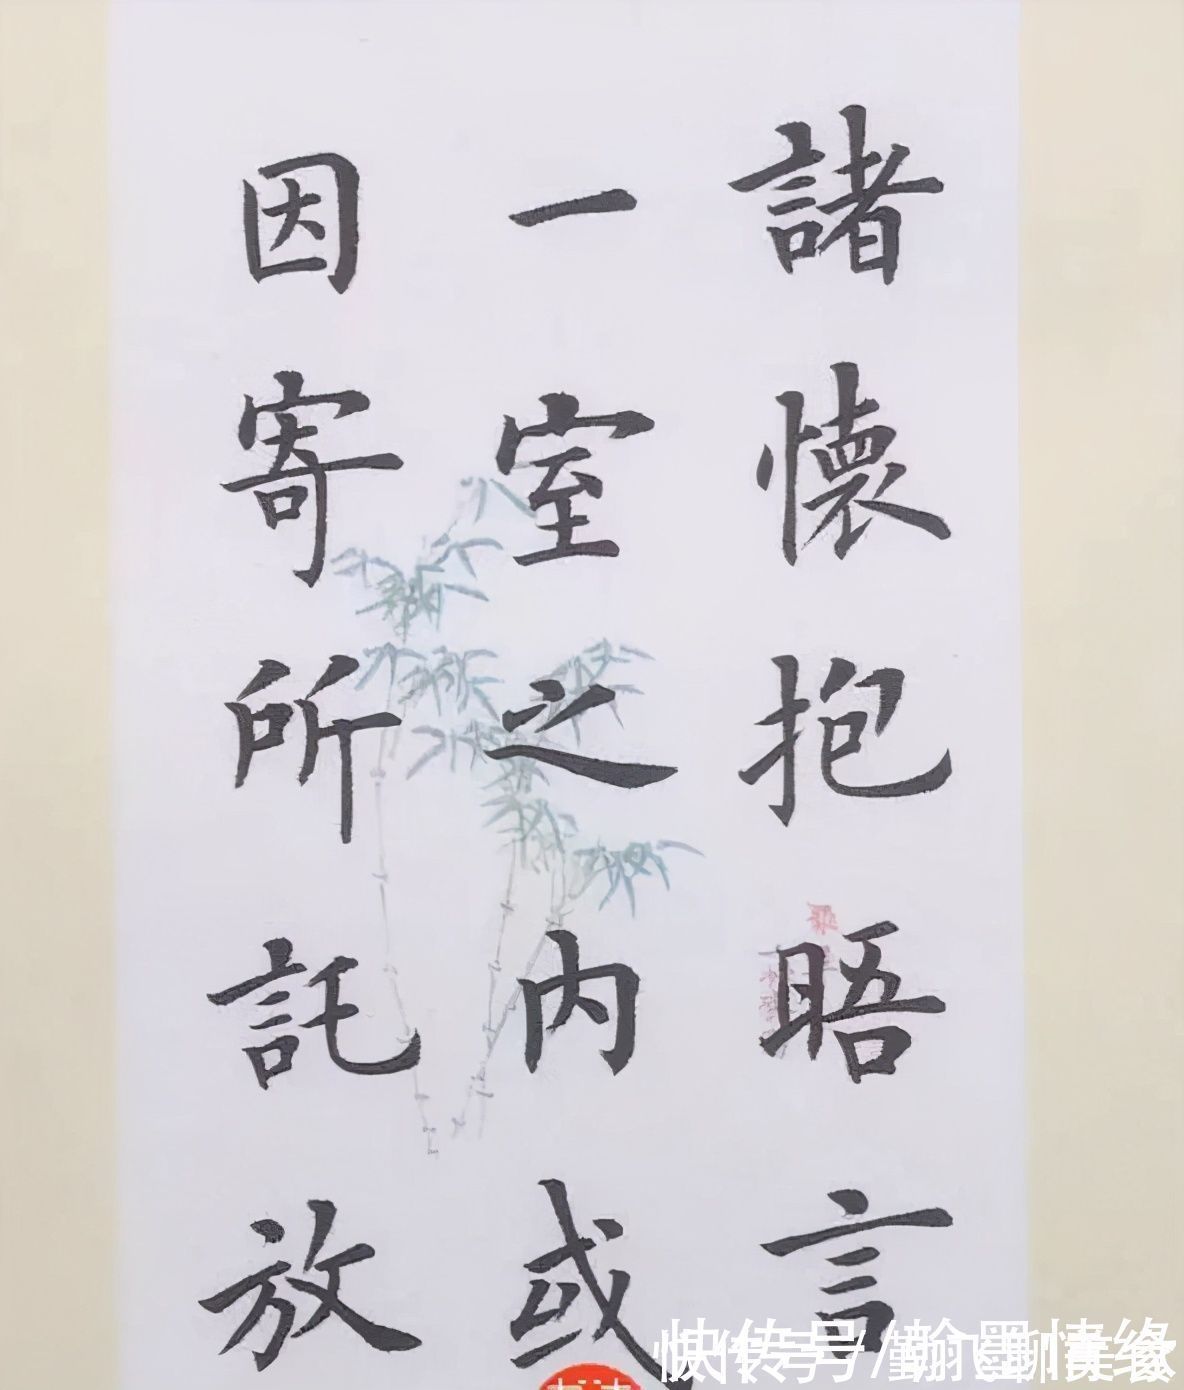 諸懷抱晤言
一室之內或
因寄所託放
快传号/翰墨情缘